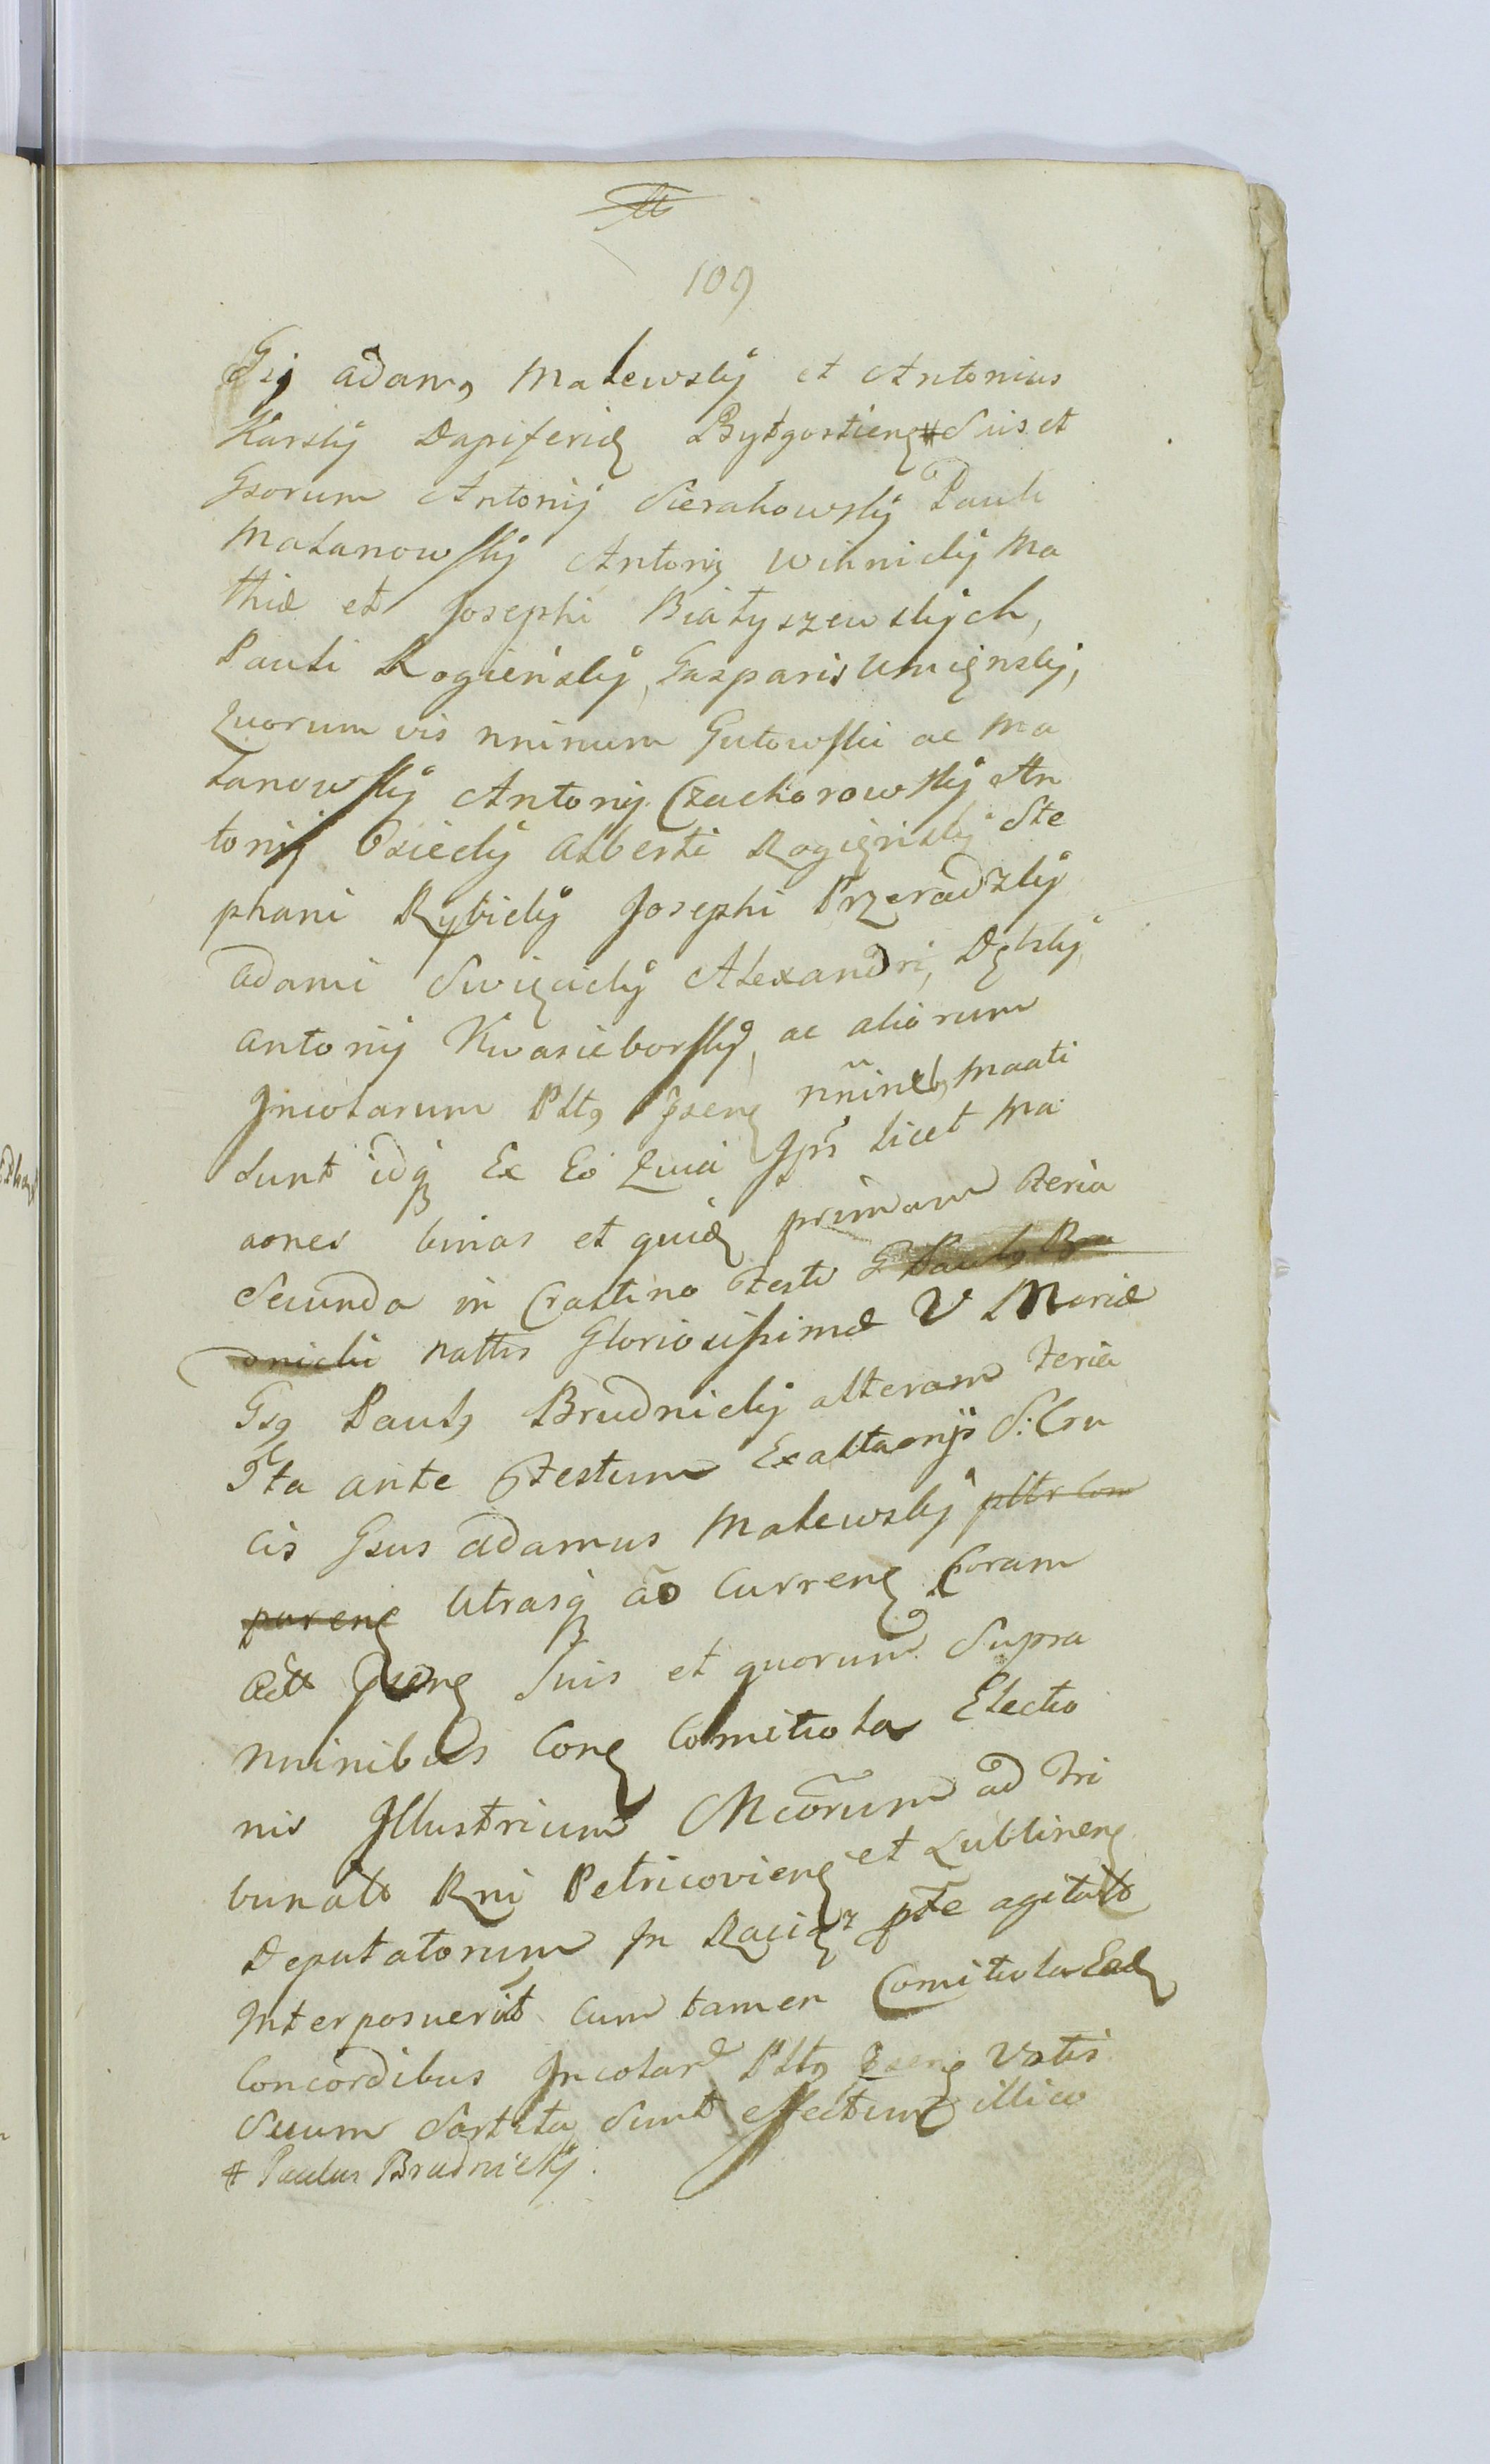 109
Gsi Adamꝰ Malewsky et Antonius
Karsky Dapiferidę Bydgostienę # Suis et
Gsorum Antonij Sierakowsky Pauli
Malanowsky Antonij Wilnicky Ma
thiæ et Josephi Białyszewskych,
Pauli Rogieńsky, Gasparis Umięnsky,
Quorum vis nninum Gutowski ac Ma
lanowsky Antonij Czachorowsky An
tonij Osiecky Alberti Rogięnsky Ste
phani Rybicky Josephi Przeradzky
Adami Swięcicky Alexandri, Dębsky,
Antonij Kwasieborsky, ac aliorum
Incolarum Pltꝰ Pzenę nñinebꝰ maati
Sunt idq Ex Eo Quia Ipsi licet ma
aones binas et quidę primam Feria
Secunda in Crastino Festi G Paulꝰ Bru
dnicki nattis Gloriosissimæ V Mariæ
Gsꝰ Paulꝰ Brudnicky alteram Feria
5ta ante Festum Exaltaonis S: Cru
cis Gsus Adamus Malewsky pltr com
parenę Utrasq ao Currenę Coram
Actt Pzenę Suis et quorum Supra
nninibus Conę Comitiola Electio
nis Illustrium Mcorum ad Tri
bunalt Rni Petricovienę et Lublinenę
Deputatorum In Raciąz pte agitatt
Interposuerit cum tamen Comitiola Eadę
Concordibus Incolar Pltꝰ Pzenę Votis
Suum Sortita Sunt effectum illico
# Paulus Brudnicky.